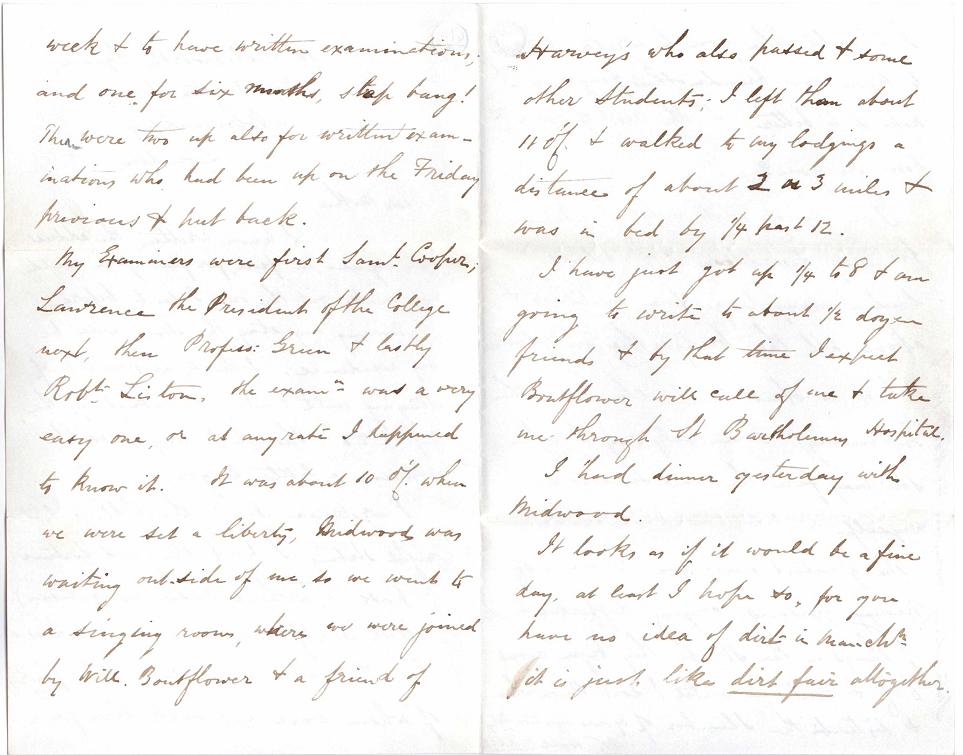 week & to have written examinations,
and one for six months, slap bang!
There were two up also for written exam-
inations who had been up on the Friday
previous & put back.
My Examiners were first Saml. Cooper,
Lawrence the President of the College
next, then Profess: Green & lastly
Robt. Liston, the examn was a very
easy one, or at any rate I happened
to know it. It was about 10 o'f. when
we were set a liberty, Midwood was
waiting out-side of me, so we went to
a singing room, where we were joined
by Will. Boutflower & a friend of
Harvey's who also passed & some
other Students; I left them about
11 o'f. & walked to my lodgings a
distance of about 2 or 3 miles &
was in bed by 1/4 past 12.
I have just got up 1/4 to 8 & am
going to write to about 1/2 dozen
friends & by that time I expect
Boutflower will call of me & take
me through St Bartholemews Hospital.
I had dinner yesterday with
Midwood.
It looks as if it would be a fine
day, at least I hope so, for you
have no idea of dirt in Manchr
it is just like dirt fair altogether.